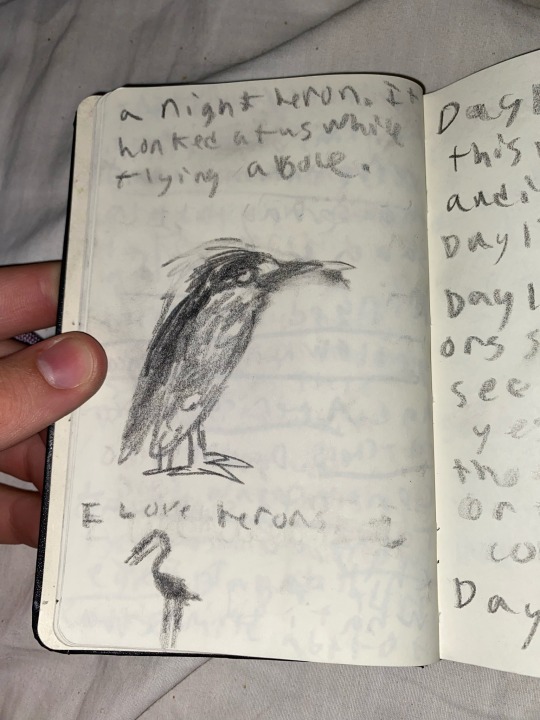 a night heron. It
honked at us while
flying above.
I Love herons
Day
this
and
Day
Day
ons
see
ye
the
or
co
Day